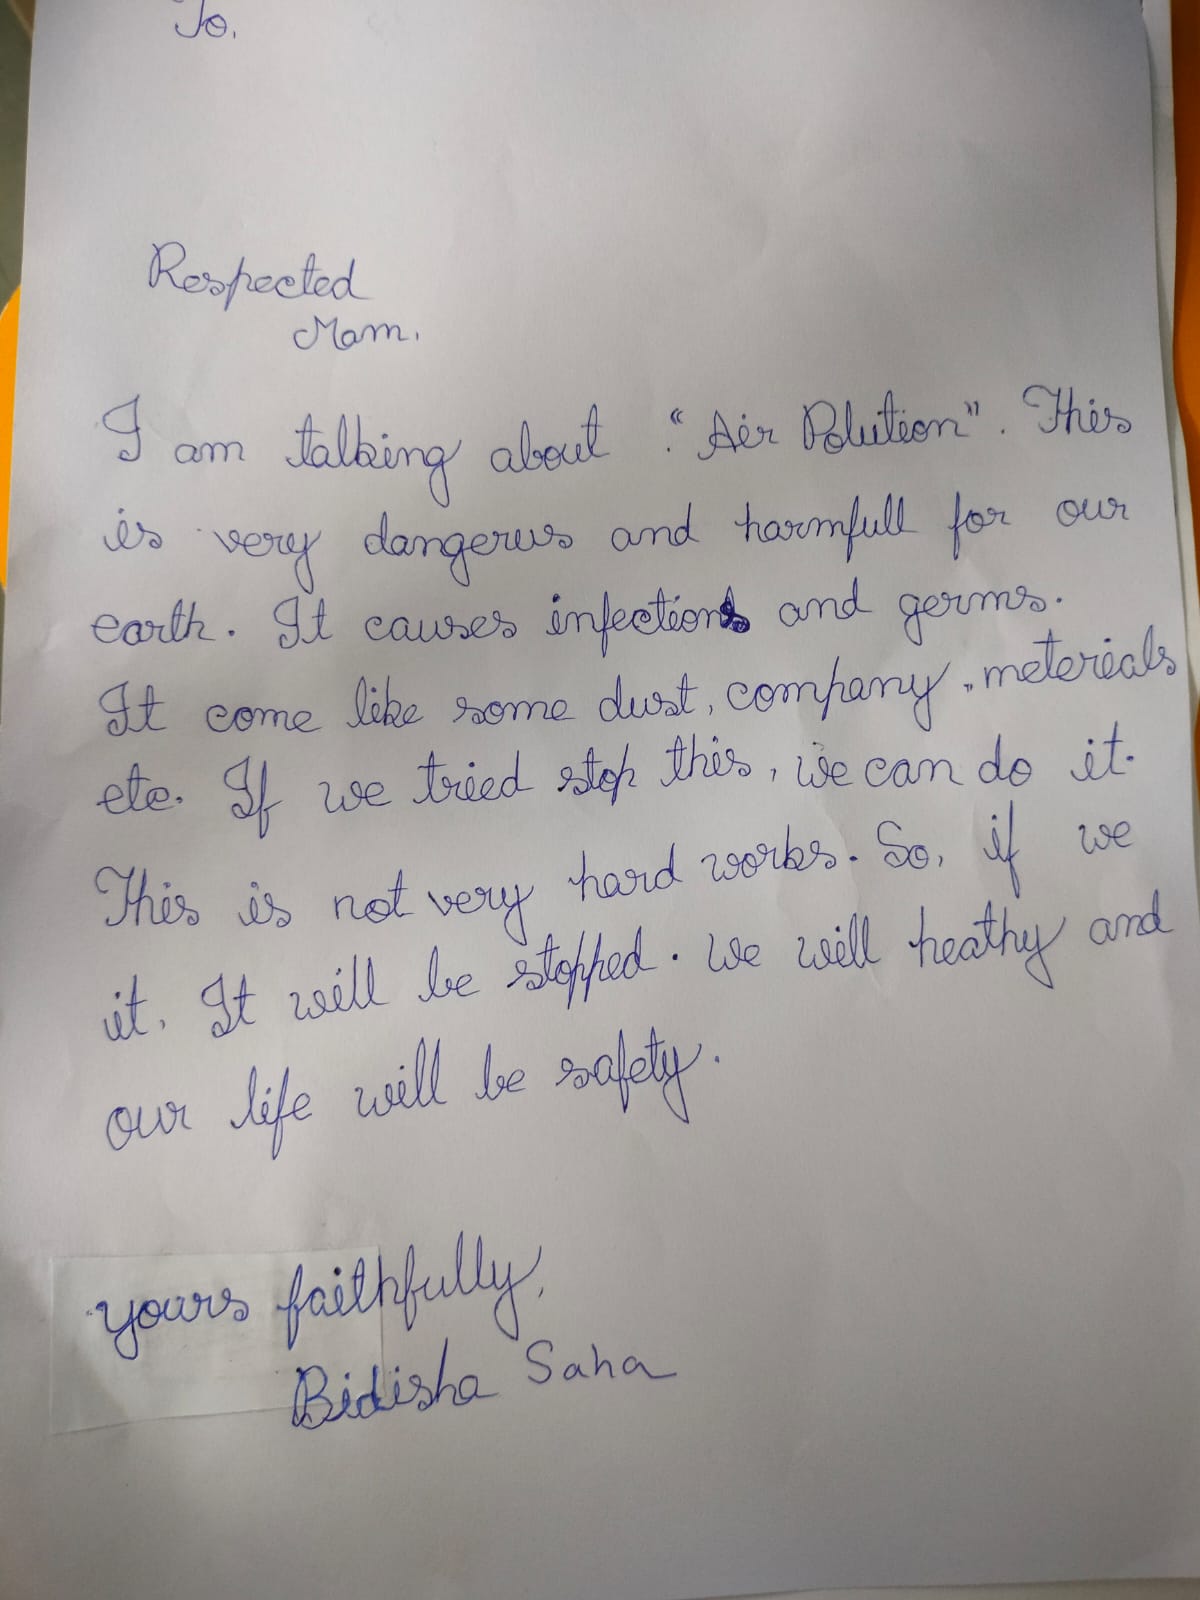 To,
Respected
Mam.
I am talking about "Air Polution". This
is very dangerus and harmfull for our
earth. It causes infections and germs.
It come like some dust, company, metereials
etc. If we tried stop this, we can do it.
This is not very hard works. So, if we
it, It will be stopped. We will heathy and
our life will be safety.
yours faithfully,
Bidisha Saha